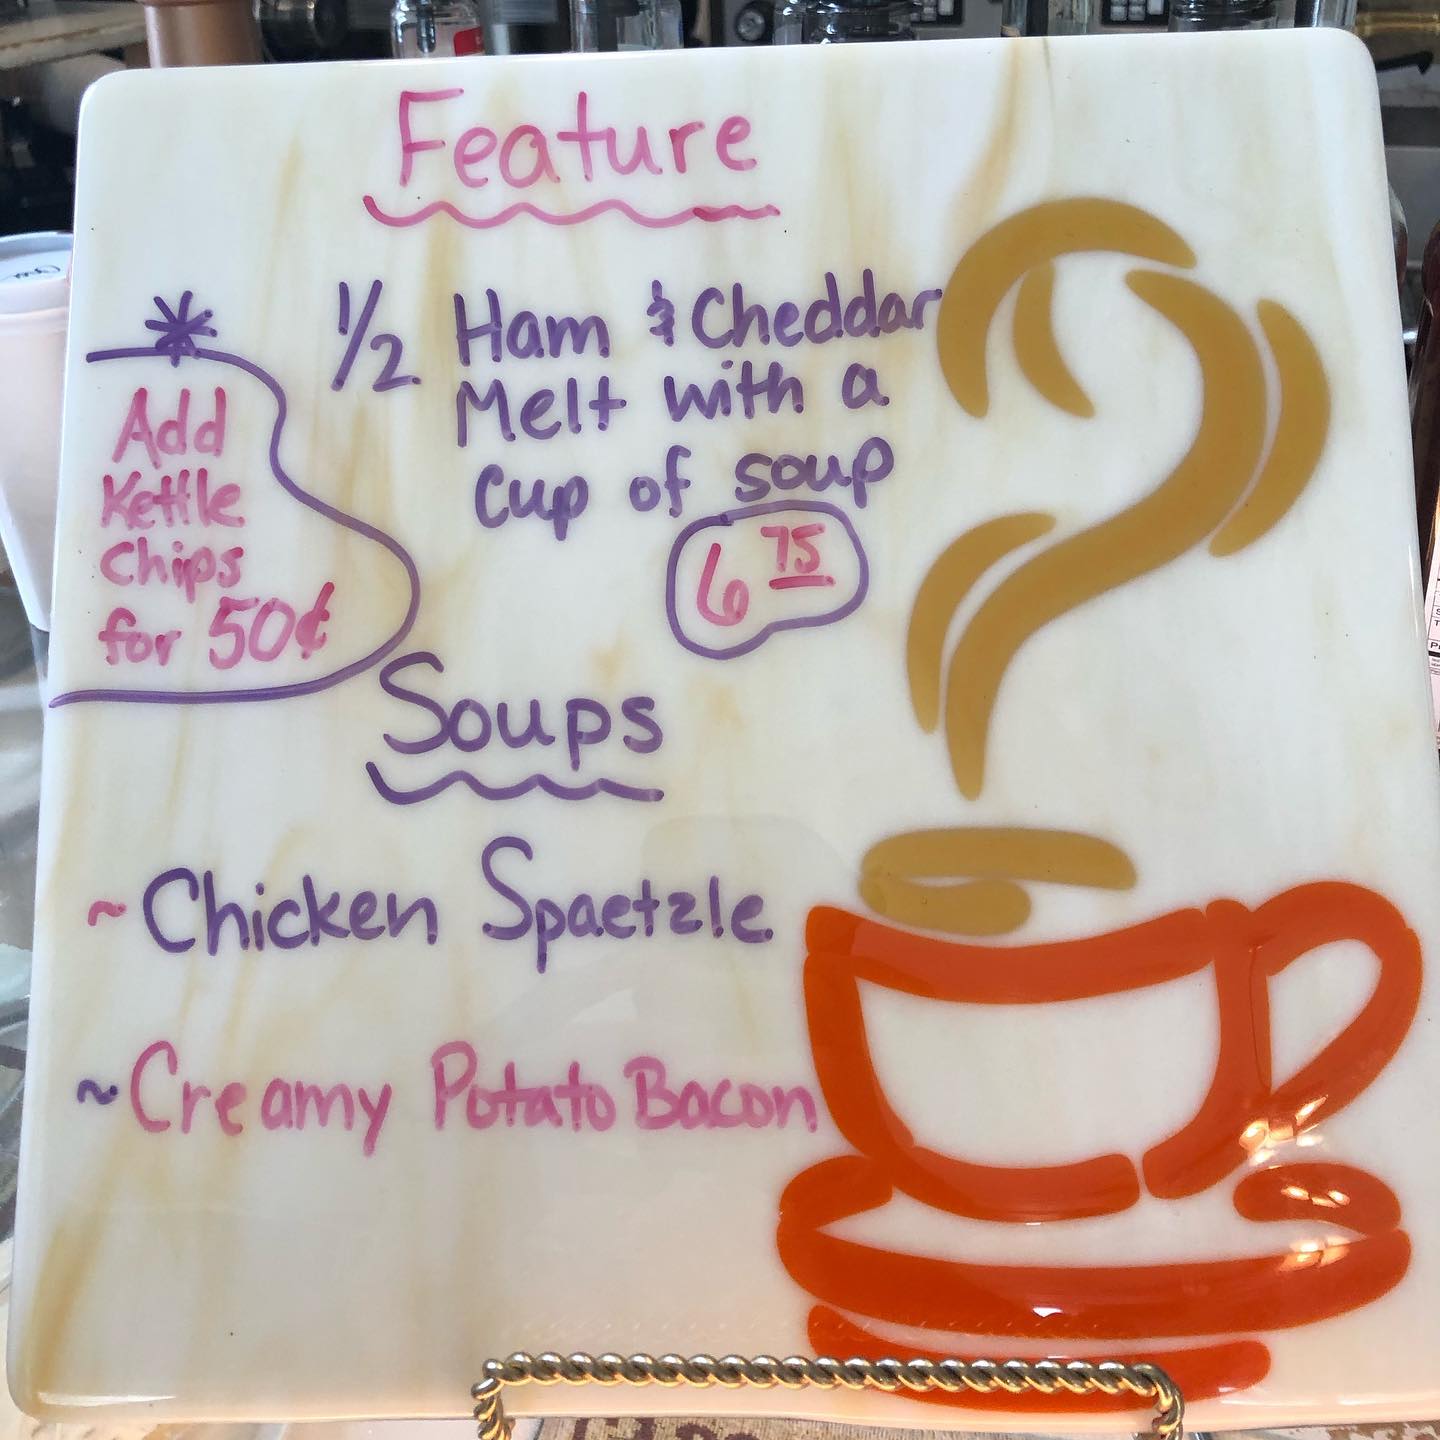 Feature
1/2 Ham & Cheddar
Melt with a
cup of soup
6 75
*
Add
Kettle
Chips
for 50¢
Soups
~ Chicken Spaetzle
~ Creamy Potato Bacon